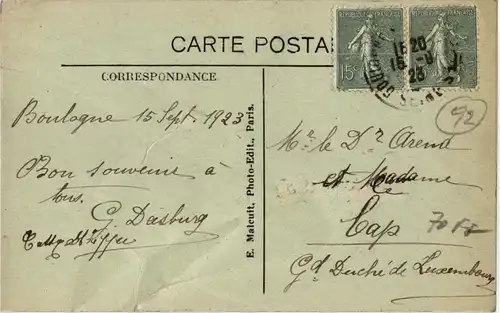 RÉPUBLIQUE FRANÇAISE RÉPUBLIQUE FRANÇAISE
15c
15 20
15 -9
23
CARTE POSTA
CORRESPONDANCE
Boulogne 15 Sept. 1923
Bon souvenir à
tous.
G. Dasburg
E. Malcuit, Photo-Edit., Paris.
92
Mr. le Dr Arend
et Madame
Cap
70 FF
Gd Duché de Luxembourg